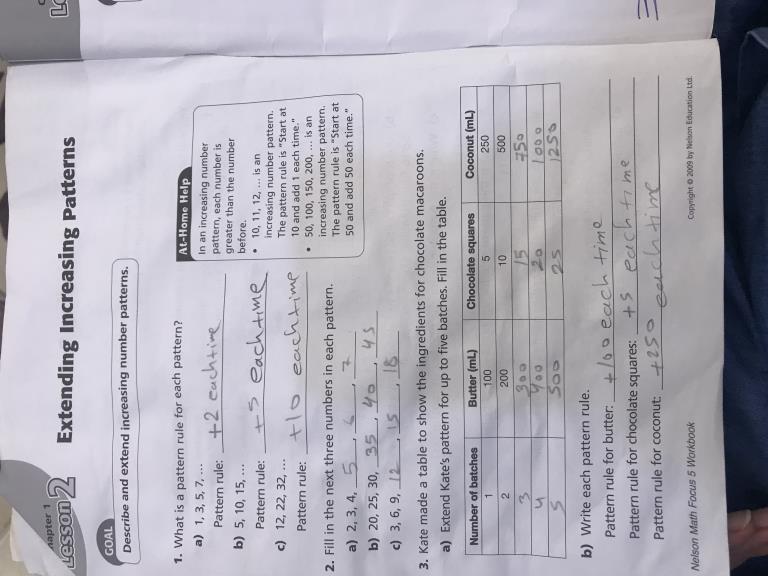 hapter 1
Lesson 2
Extending Increasing Patterns
GOAL
Describe and extend increasing number patterns.
1. What is a pattern rule for each pattern?
a) 1, 3, 5, 7, ...
Pattern rule: +2 each time
b) 5, 10, 15, ...
Pattern rule: +5 each time
c) 12, 22, 32, ...
Pattern rule: +10 each time
At-Home Help
In an increasing number
pattern, each number is
greater than the number
before.
• 10, 11, 12, ... is an
increasing number pattern.
The pattern rule is "Start at
10 and add 1 each time."
• 50, 100, 150, 200, ... is an
increasing number pattern.
The pattern rule is "Start at
50 and add 50 each time."
2. Fill in the next three numbers in each pattern.
a) 2, 3, 4, 5, 6, 7
b) 20, 25, 30, 35, 40, 45
c) 3, 6, 9, 12, 15, 18
3. Kate made a table to show the ingredients for chocolate macaroons.
a) Extend Kate's pattern for up to five batches. Fill in the table.
Number of batches Butter (mL) Chocolate squares Coconut (mL)
1 100 5 250
2 200 10 500
3 300 15 750
4 400 20 1000
5 500 25 1250
b) Write each pattern rule.
Pattern rule for butter: +100 each time
Pattern rule for chocolate squares: +5 each time
Pattern rule for coconut: +250 each time
Nelson Math Focus 5 Workbook Copyright © 2009 by Nelson Education Ltd.